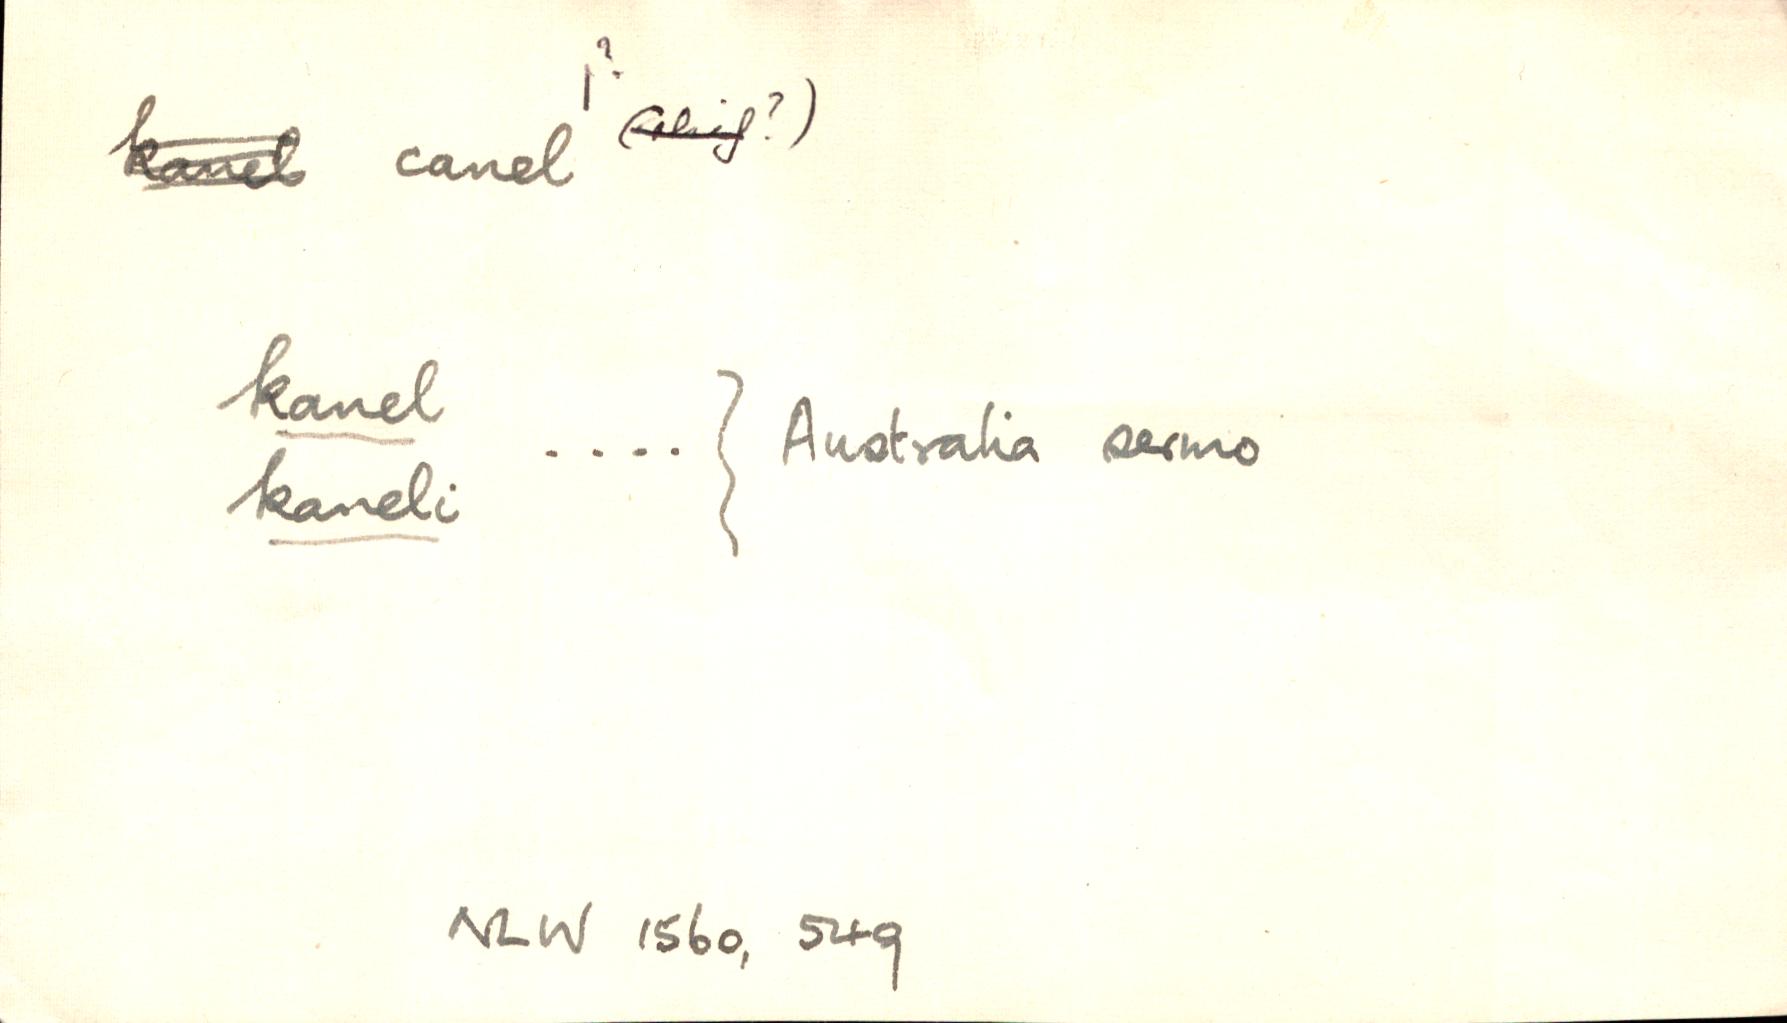 kanel canel 1?. ( ?)
kanel
.... } Australia sermo
kaneli
NLW 1560, 549